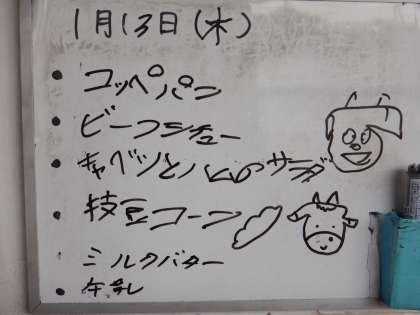 1月13日(木)
• コッペパン
• ビーフシチュー
• キャベツとハムのサラダ
• 枝豆コーン
ミルクバター
• 牛乳